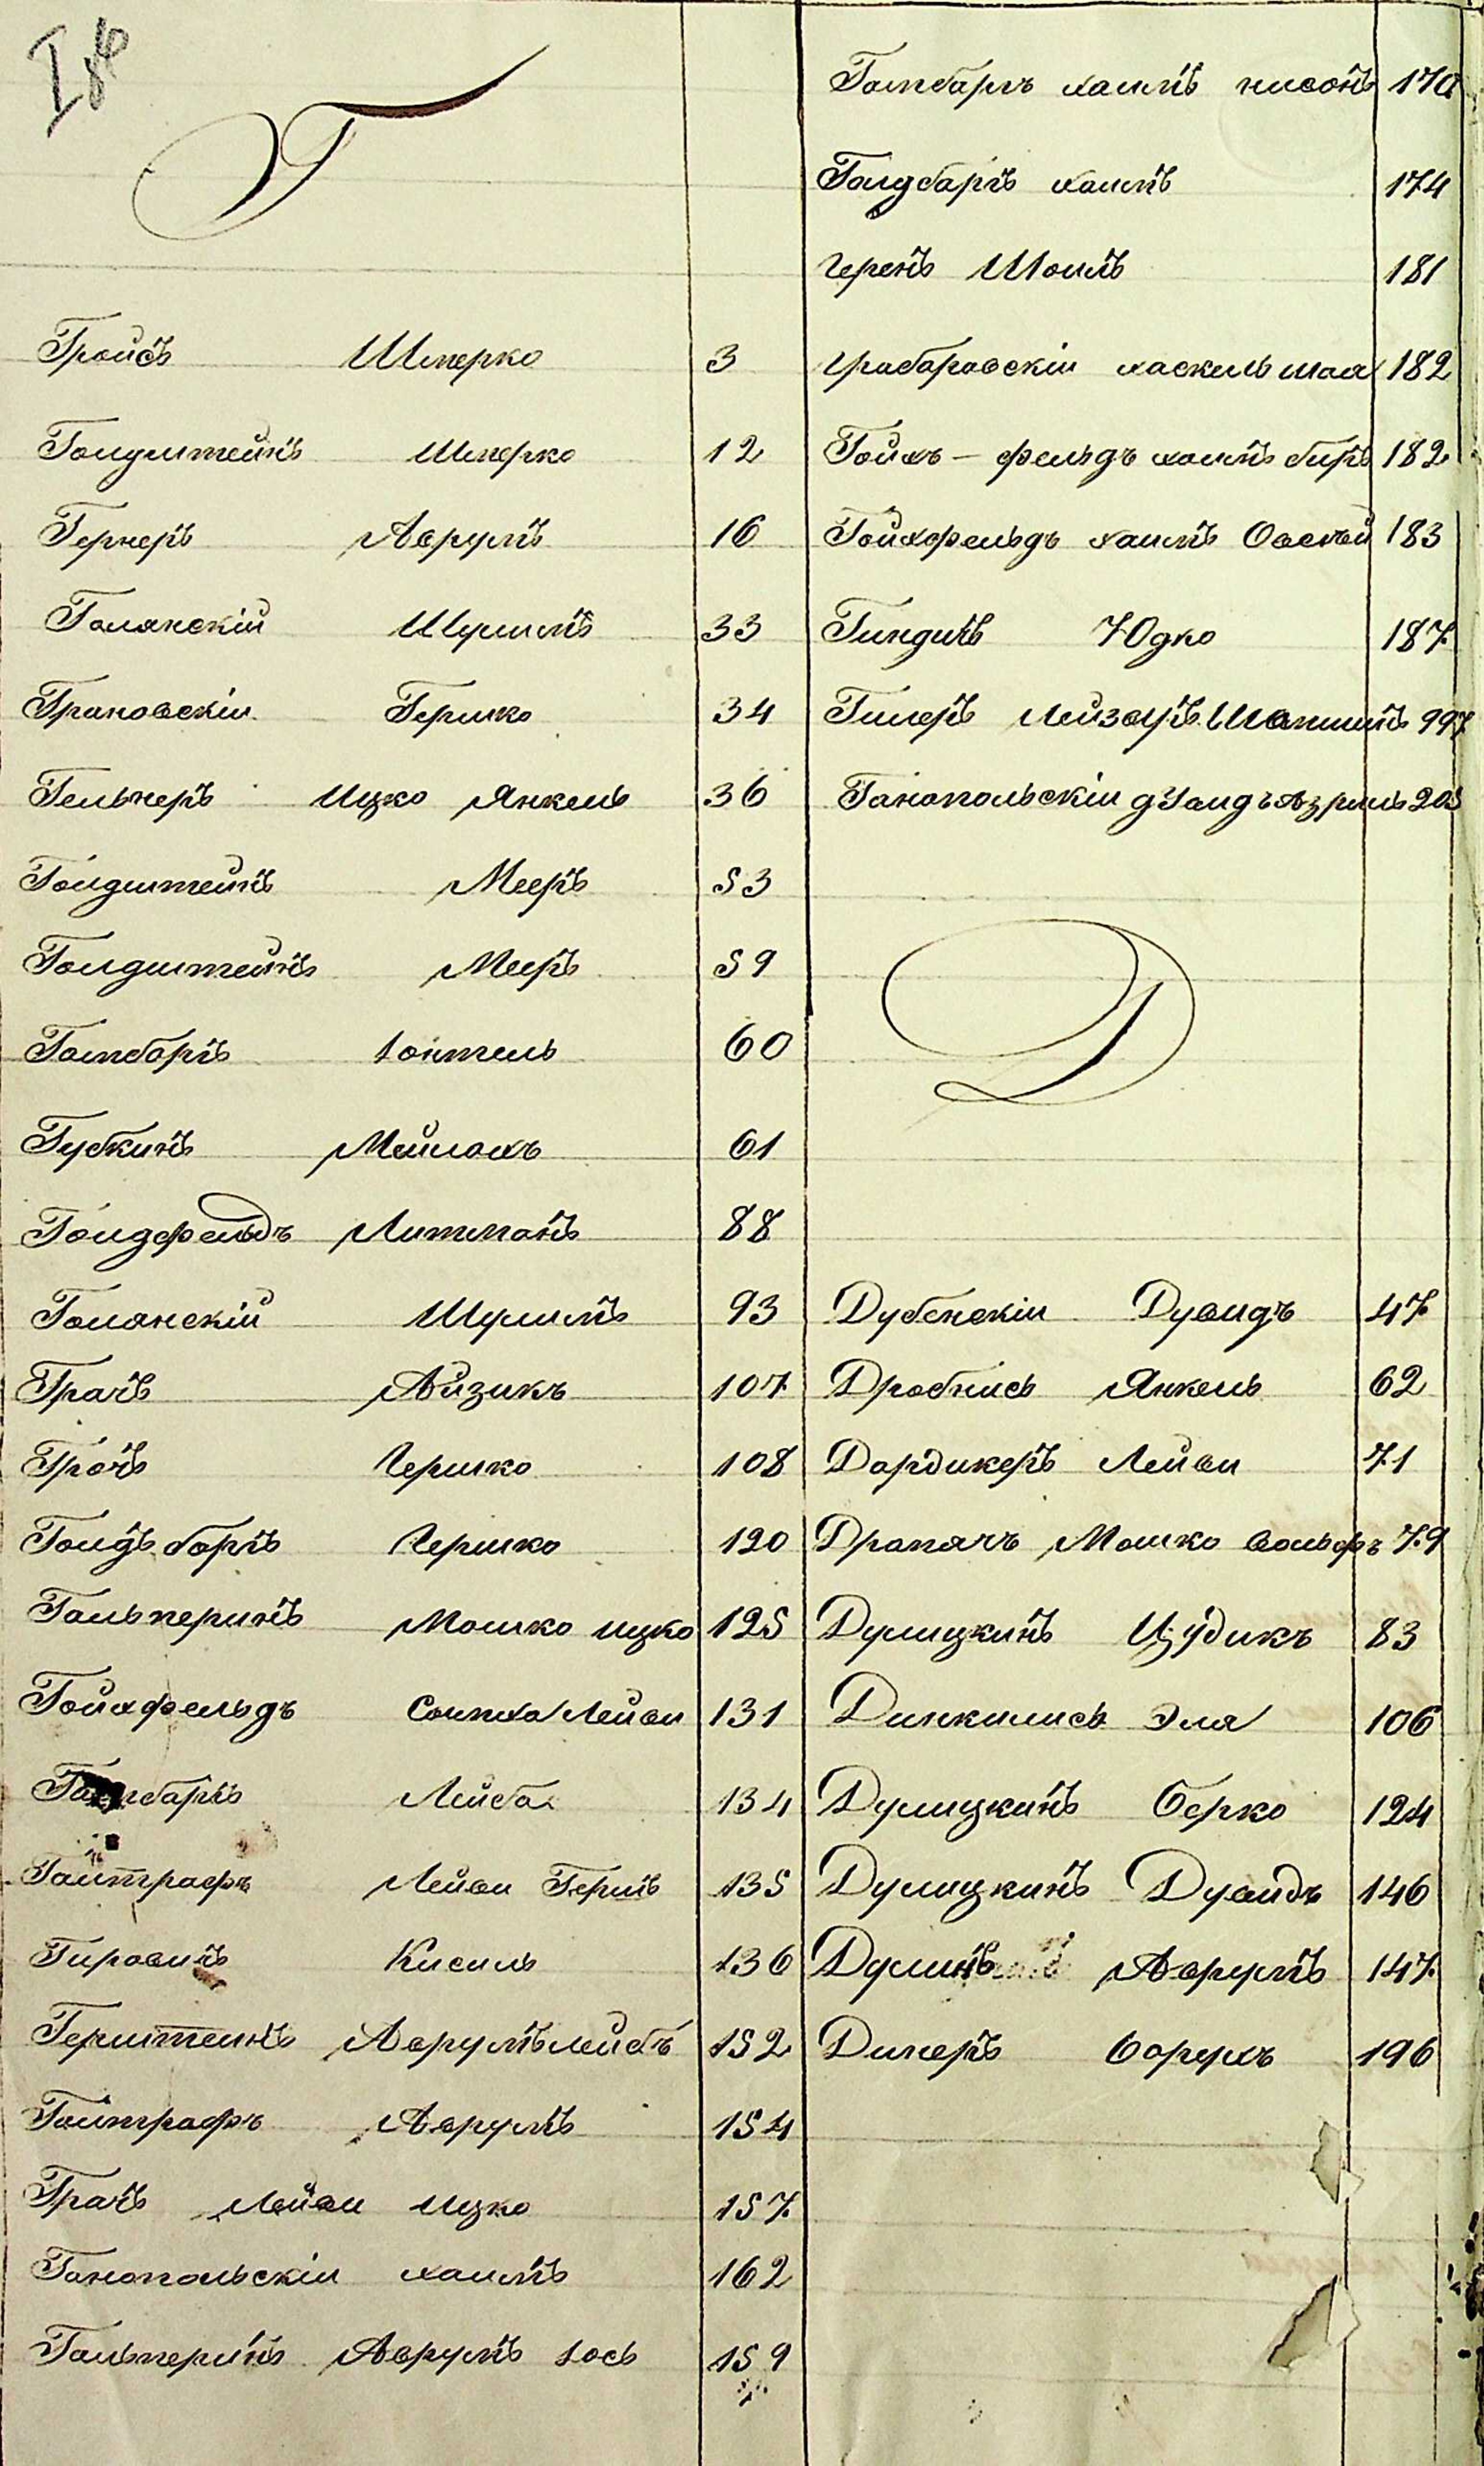 Г
Гройсъ Шмерко 3
Голдштейнъ Шмерко 12
Гернеръ Аврумъ 16
Голянскій Шулимъ 33
Грановскіи Гершко 34
Гельнеръ Ицко Янкель 36
Голдштейнъ Мееръ 53
Голдштейнъ Мееръ 59
Гомбаргъ Іонтель 60
Губкинъ Мейлохъ 61
Голдфельдъ Литманъ 88
Голянскій Шулимъ 93
Грачъ Айзикъ 107
Грачъ Гершко 108
Голдъ баргъ Гершко 120
Гальперинъ Мошко ицко 125
Гойхфельдъ Сомха Лейви 131
Лейба 134
Гольтрафъ Лейви Гершъ 135
Гировичъ Кисиль 136
Герштеинъ Аврумъ лейбъ 152
Гольтрафъ Аврумъ 154
Грачъ Лейви Ицко 157
Ганопольскіи хаимъ 162
Гальперинъ Аврумъ Іось 159
Гомбаргъ хаимъ нисонъ 170
Голдбаргъ хаимъ 174
геренъ Шоилъ 181
грабаровскіи хаскель шая 182
Гойхъ - фельдъ хаимъ биръ 182
Гойхфельдъ хаимъ Овсей 183
Гиндинъ Юдко 187
Гилеръ Лейзоръ Шапшинъ 997
Ганопольскіи дУвидъ Азриль 205
Д
Дубенскіи Дувидъ 47
Дробнисъ Янкель 62
Дордикеръ Лейви 71
Драпачъ Мошко вольфъ 79
Дулицкинъ Цудикъ 83
Динкилисъ Эля 106
Дулицкинъ Берко 124
Дулицкинъ Дувидъ 146
Дулинъ Аврумъ 147
Динеръ борухъ 196